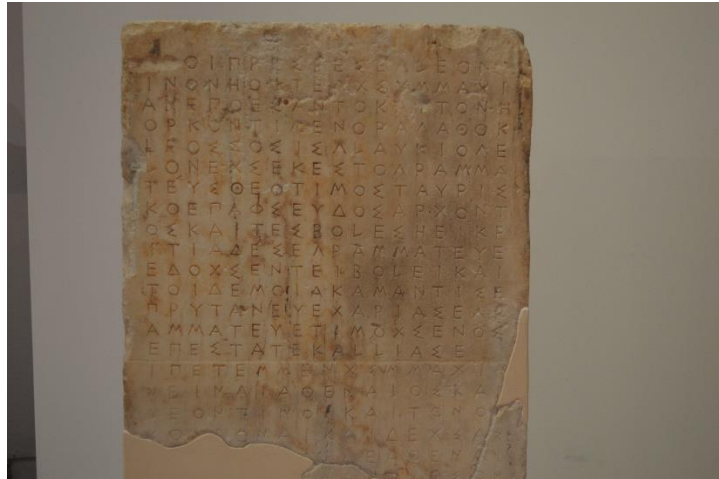 ΟΙΠΡΕΣΒΕΣΕΓΛΕΟΝ
ΙΝΟΝΗΟΙΤΕΧΣΥΜΜΑΧΙ
ΑΝΕΠΟΕΣΑΝΤΟΚΑΙΤΟΝΗ
ΟΡΚΟΝΤΙΜΕΝΟΡΑΓΑΘΟΚ
ΛΕΟΣΣΟΣΙΣΓΛΑΥΚΙΟΓΕ
ΛΟΝΕΧΣΕΚΕΣΤΟΓΡΑΜΜΑ
ΤΕΥΣΘΕΟΤΙΜΟΣΤΑΥΡΙΣ
ΚΟΕΠΑΦΣΕΥΔΟΣΑΡΧΟΝΤ
ΟΣΚΑΙΤΕΣΒΟΛΕΣΗΕΙΚΡ
ΙΤΙΑΔΕΣΕΓΡΑΜΜΑΤΕΥΕ
ΕΔΟΧΣΕΝΤΕΙΒΟΛΕΙΚΑΙ
ΤΟΙΔΕΜΟΙΑΚΑΜΑΝΤΙΣΕ
ΠΡΥΤΑΝΕΥΕΧΑΡΙΑΣΕΓΡ
ΑΜΜΑΤΕΥΕΤΙΜΟΧΣΕΝΟΣ
ΕΠΕΣΤΑΤΕΚΑΛΛΙΑΣΕ
ΙΠΕΤΕΜΜΕΝΧΣΥΜΜΑΧΙ
ΝΕΙΝΑΙΑΘΕΝΑΙΟΙΣΚΑ
ΕΟΝΤΙΝΟΙΣΚΑΙΤΟΝ